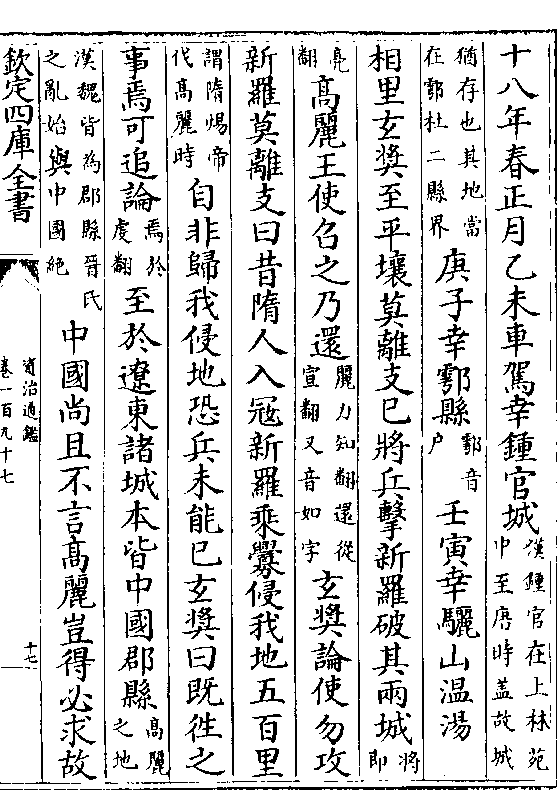 十八年春正月乙未車駕幸鍾官城漢鍾官在上林苑中至唐時蓋故城
猶存也其地當在鄠杜二縣界庚子幸鄠縣鄠音户壬寅幸驪山温湯
相里玄奬至平壤莫離支已將兵擊新羅破其兩城將即
亮翻高麗王使召之乃還麗力知翻還從宣翻又音如字玄奬諭使勿攻
新羅莫離支曰昔隋人入冦新羅乘釁侵我地五百里
謂隋煬帝伐高麗時自非歸我侵地恐兵未能已玄奬曰既徃之
事焉可追論焉於䖍翻至於遼東諸城本皆中國郡縣高麗之地
漢魏皆為郡縣晉氏之亂始與中國絶中國尚且不言高麗豈得必求故
欽定四庫全書
資治通鑑
卷一百九十七
十七